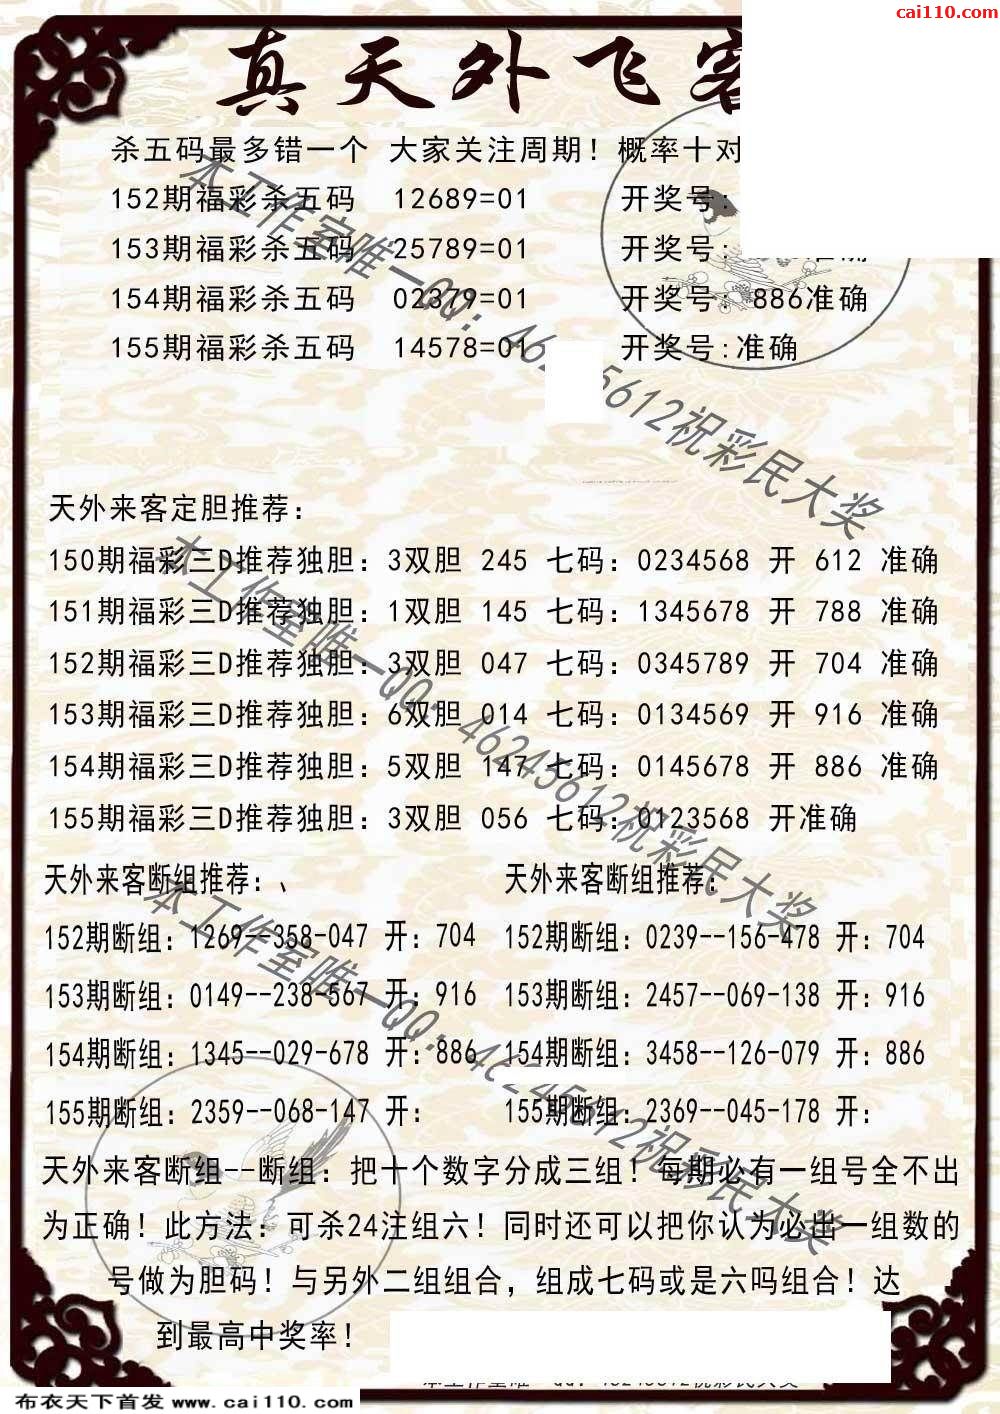 cai110.com
真天外飞客
杀五码最多错一个 大家关注周期！概率十对
152期福彩杀五码 12689=01 开奖号:
153期福彩杀五码 25789=01 开奖号: 准确
154期福彩杀五码 02379=01 开奖号: 886准确
155期福彩杀五码 14578=01 开奖号:准确
天外来客定胆推荐:
150期福彩三D推荐独胆: 3双胆 245 七码: 0234568 开 612 准确
151期福彩三D推荐独胆: 1双胆 145 七码: 1345678 开 788 准确
152期福彩三D推荐独胆: 3双胆 047 七码: 0345789 开 704 准确
153期福彩三D推荐独胆: 6双胆 014 七码: 0134569 开 916 准确
154期福彩三D推荐独胆: 5双胆 147 七码: 0145678 开 886 准确
155期福彩三D推荐独胆: 3双胆 056 七码: 0123568 开准确
天外来客断组推荐:、 天外来客断组推荐:
152期断组: 1269--358-047 开: 704 152期断组: 0239--156-478 开: 704
153期断组: 0149--238-567 开: 916 153期断组: 2457--069-138 开: 916
154期断组: 1345--029-678 开: 886 154期断组: 3458--126-079 开: 886
155期断组: 2359--068-147 开: 155期断组: 2369--045-178 开:
天外来客断组--断组: 把十个数字分成三组！每期必有一组号全不出
为正确！此方法: 可杀24注组六！同时还可以把你认为必出一组数的
号做为胆码！与另外二组组合, 组成七码或是六吗组合！达
到最高中奖率！
本工作室唯一QQ: 46245612祝彩民大奖
本工作室唯一QQ: 46245612祝彩民大奖
本工作室唯一QQ: 46245612祝彩民大奖
布衣天下首发 www.cai110.com